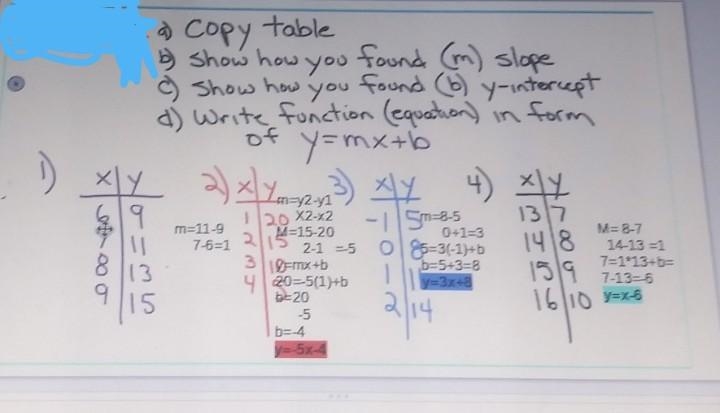 a) Copy table
b) Show how you found (m) slope
c) Show how you found (b) y-intercept
d) Write function (equation) in form
of y=mx+b
1)
x y
6 9
7 11
8 13
9 15
m=11-9
7-6=1
2)
x y
1 20
2 15
3 10
4
m=y2-y1
X2-x2
M=15-20
2-1 =-5
y=mx+b
20=-5(1)+b
b=20
-5
b=-4
y=-5x-4
3)
x y
-1 5
0 8
1 11
2 14
m=8-5
0+1=3
5=3(-1)+b
b=5+3=8
y=3x+8
4)
x y
13 7
14 8
15 9
16 10
M=8-7
14-13 =1
7=1*13+b=
7-13=-6
y=x-6